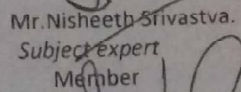 Mr.Nisheeth Srivastva.
Subject expert
Member